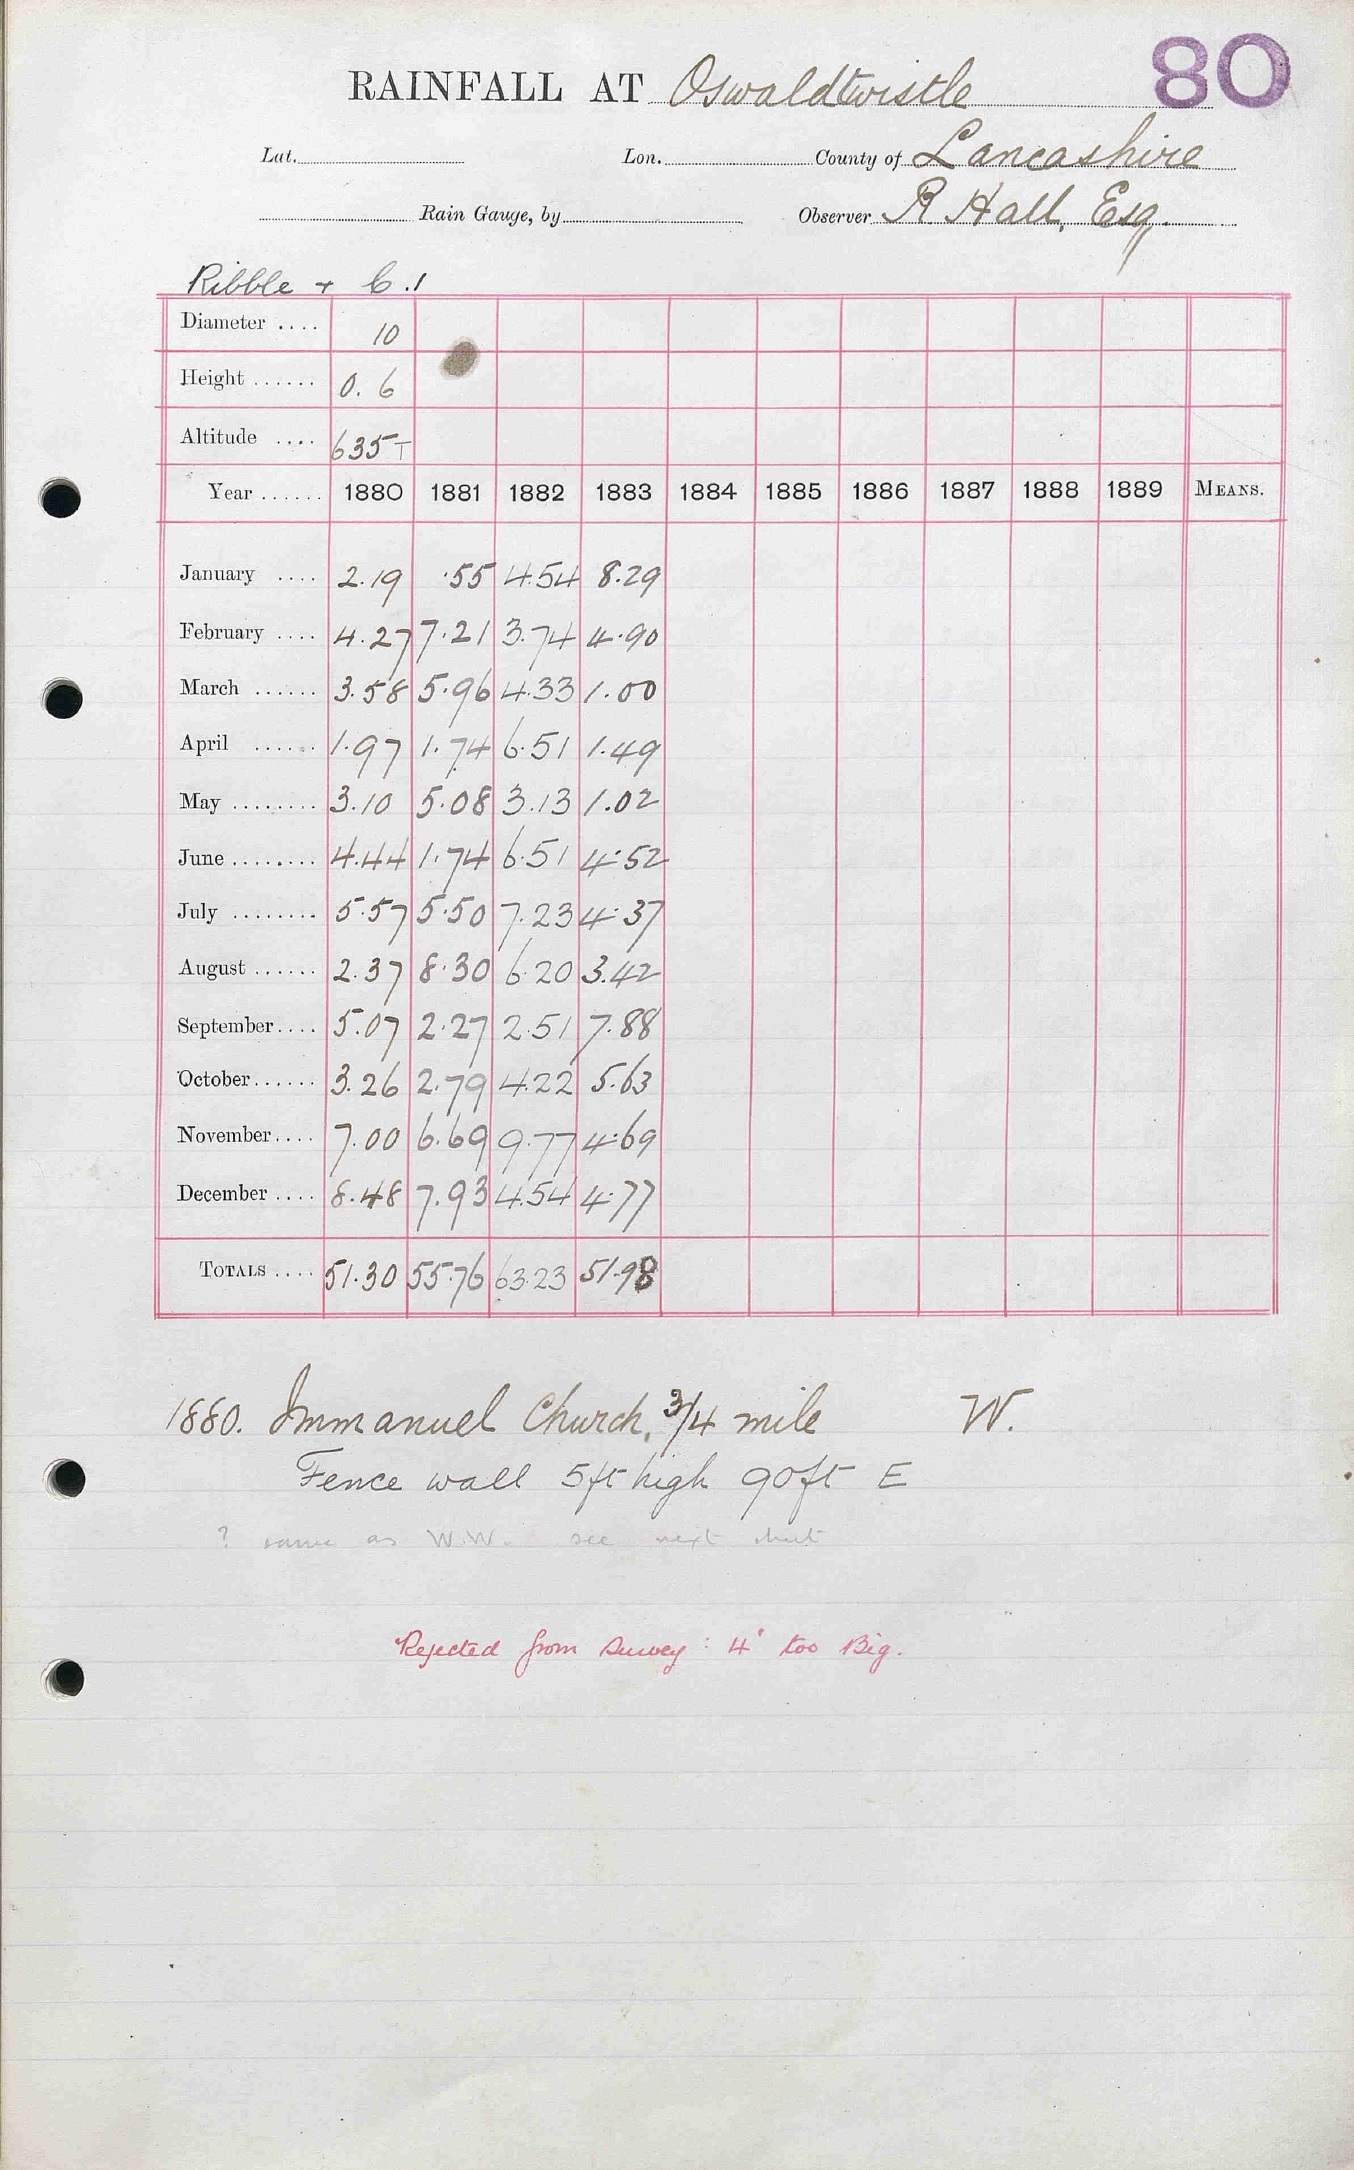 80
RAINFALL AT Oswaldtwistle
Lat. Lon. County of Lancashire
Rain Gauge, by Observer R. Hall, Esq.
Ribble + 6.1
Diameter .... 10
Height ...... 0.6
Altitude .... 635 T
Year ...... 1880 1881 1882 1883 1884 1885 1886 1887 1888 1889 MEANS.
January .... 2.19 .55 4.54 8.29
February .... 4.27 7.21 3.74 4.90
March ...... 3.58 5.96 4.33 1.00
April ...... 1.97 1.74 6.51 1.49
May ........ 3.10 5.08 3.13 1.02
June ........ 4.44 1.74 6.51 4.52
July ........ 5.57 5.50 7.23 4.37
August ...... 2.37 8.30 6.20 3.42
September .... 5.07 2.27 2.51 7.88
October ...... 3.26 2.79 4.22 5.63
November .... 7.00 6.69 9.77 4.69
December .... 8.48 7.93 4.54 4.77
TOTALS .... 51.30 55.76 63.23 51.98
1880. Immanuel Church, 3/4 mile W.
Fence wall 5ft high 90ft E
? same as W.W. see next sheet
Rejected from Survey: 4" too Big.